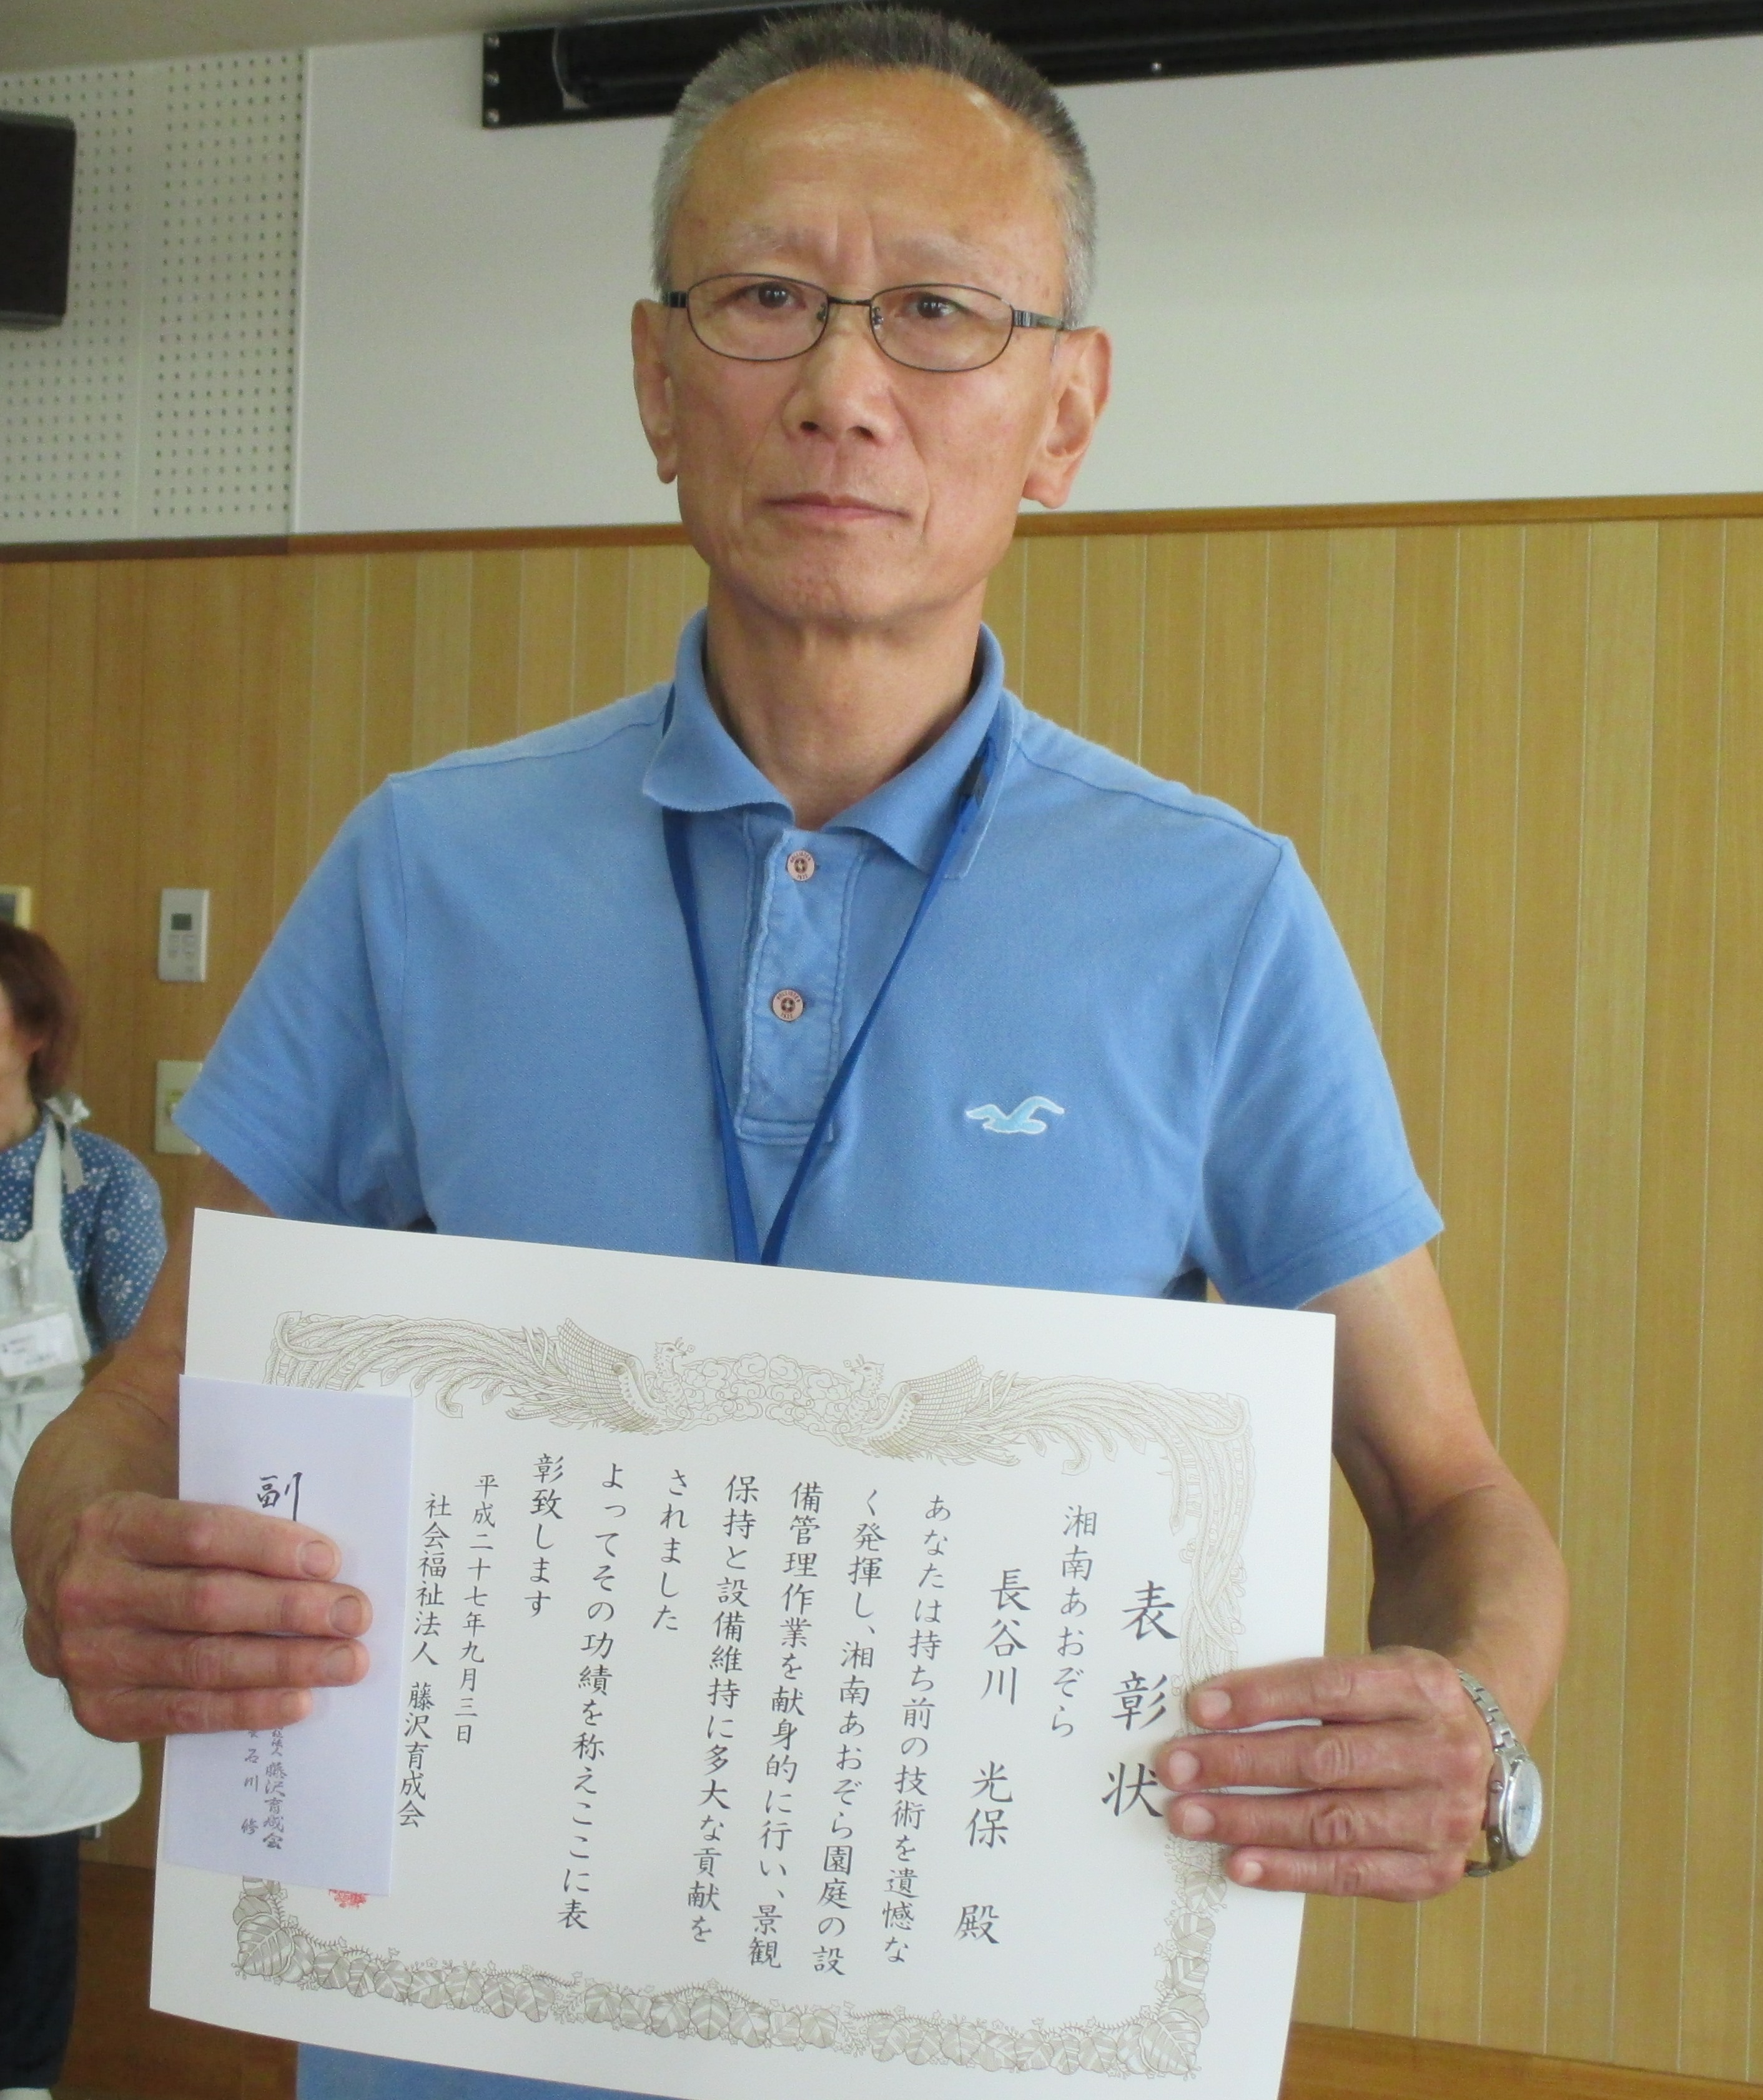 表彰状
湘南あおぞら
長谷川 光保 殿
あなたは持ち前の技術を遺憾な
く発揮し、湘南あおぞら園庭の設
備管理作業を献身的に行い、景観
保持と設備維持に多大な貢献を
されました
よってその功績を称えここに表
彰致します
平成二十七年九月三日
社会福祉法人 藤沢育成会
副
藤沢育成会
石川 修